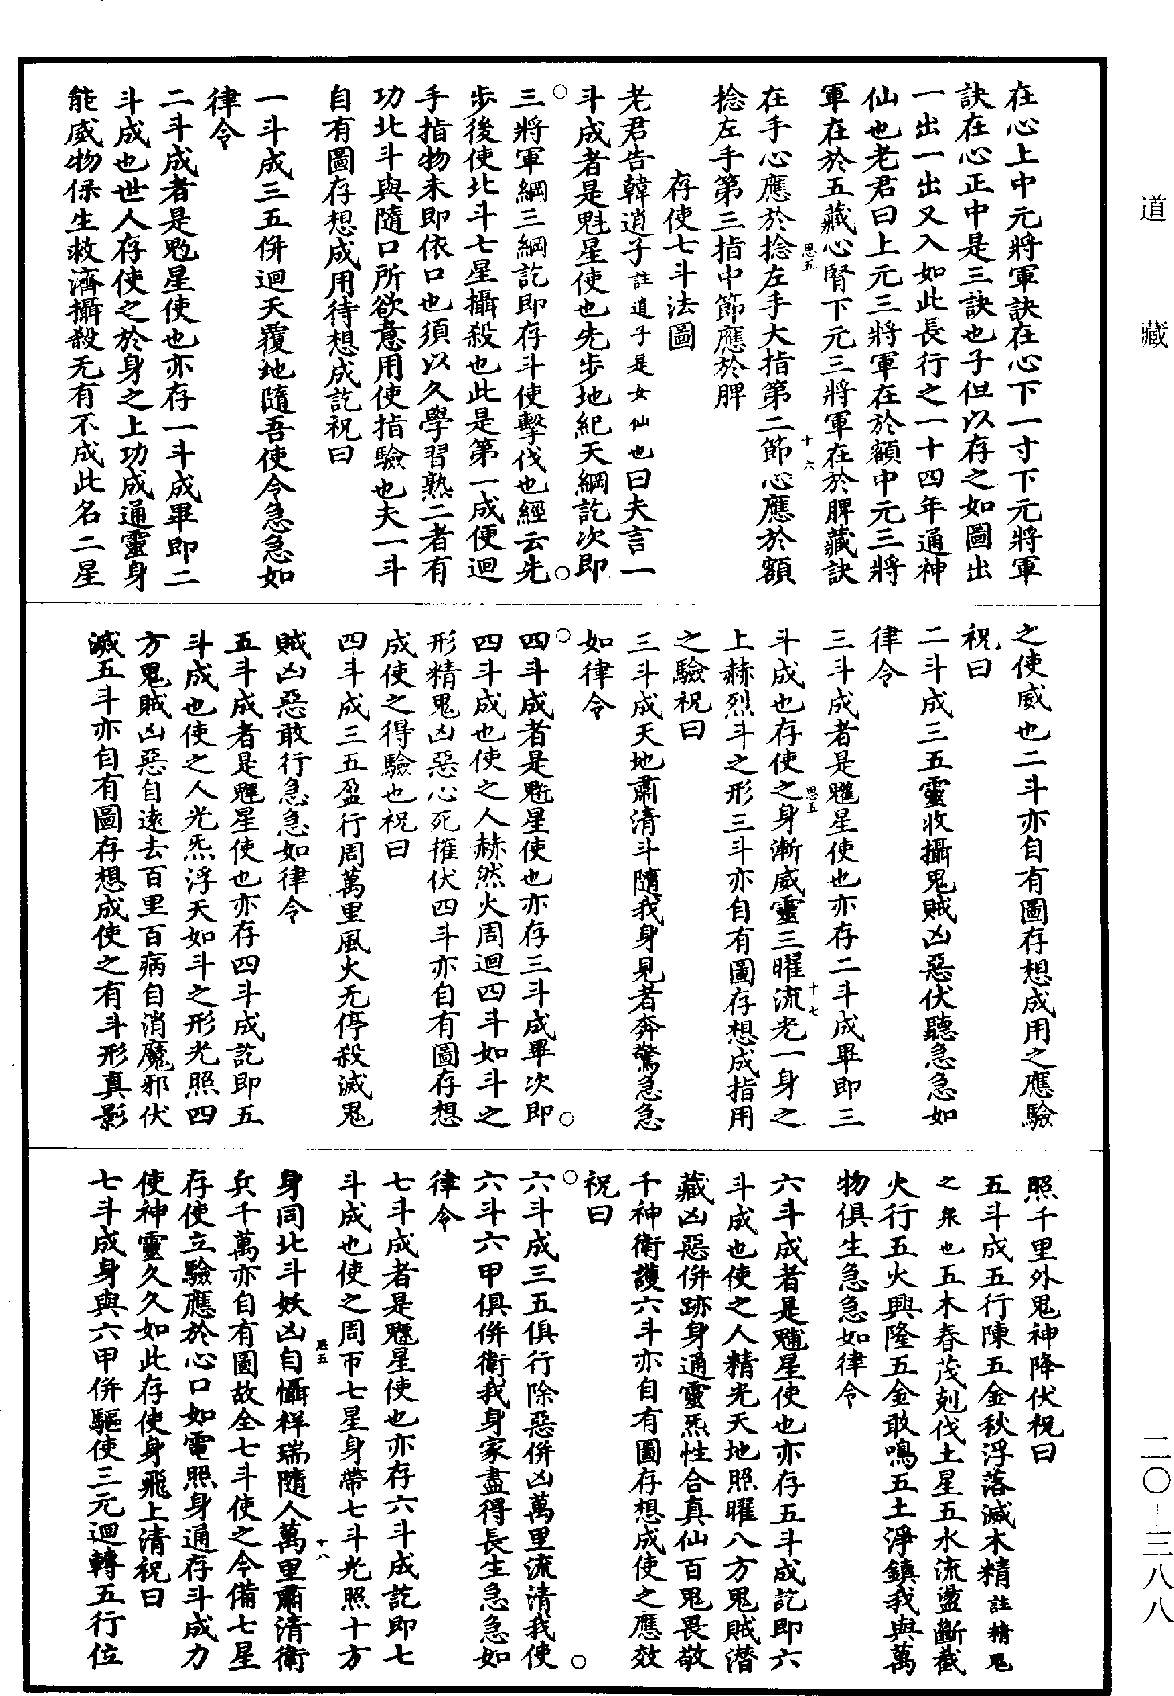 道藏
在心上中元將軍訣在心下一寸下元將軍
訣在心正中是三訣也子但以存之如圖出
一出一出又入如此長行之一十四年通神
仙也老君曰上元三將軍在於額中元三將
軍在於五藏心腎下元三將軍在於脾藏訣
思五 十六
在手心應於捻左手大指第二節心應於額
捻左手第三指中節應於脾
存使七斗法圖
老君告韓逍子註逍子是女仙也曰夫言一
斗成者是魁星使也先步地紀天綱訖次即
三將軍綱三綱訖即存斗使擊伐也經云先
步後使北斗七星攝殺也此是第一成便迴
手指物未即依口也須以久學習熟二者有
功北斗與隨口所欲意用使指驗也夫一斗
自有圖存想成用待想成訖祝曰
一斗成三五併迴天覆地隨吾使令急急如
律令
二斗成者是魁星使也亦存一斗成畢即二
斗成也世人存使之於身之上功成通靈身
能威物保生救濟攝殺无有不成此名二星
之使威也二斗亦自有圖存想成用之應驗
祝曰
二斗成三五靈收攝鬼賊凶惡伏聽急急如
律令
三斗成者是魓星使也亦存二斗成畢即三
斗成也存使之身漸威靈三曜流光一身之
思五 十七
上赫烈斗之形三斗亦自有圖存想成指用
之驗祝曰
三斗成天地肅清斗隨我身見者奔驚急急
如律令
四斗成者是星使也亦存三斗成畢次即
四斗成也使之人赫然火周迴四斗如斗之
形精鬼凶惡心死摧伏四斗亦自有圖存想
成使之得驗也祝曰
四斗成三五盈行周萬里風火无停殺滅鬼
賊凶惡敢行急急如律令
五斗成者是魓星使也亦存四斗成訖即五
斗成也使之人光炁浮天如斗之形光照四
方鬼賊凶惡自遠去百里百病自消魔邪伏
滅五斗亦自有圖存想成使之有斗形真影
照千里外鬼神降伏祝曰
五斗成五行陳五金秋浮落滅木精註精鬼
之泉也五木春茂剋伐土星五水流盪斷截
火行五火興隆五金敢鳴五土淨鎮我與萬
物俱生急急如律令
六斗成者是星使也亦存五斗成訖即六
斗成也使之人精光天地照曜八方鬼賊潛
藏凶惡併跡身通靈炁性合真仙百鬼畏敬
千神衛護六斗亦自有圖存想成使之應效
祝曰
六斗成三五俱行除惡併凶萬里流清我使
六斗六甲俱併衛我身家盡得長生急急如
律令
七斗成者是魒星使也亦存六斗成訖即七
斗成也使之周帀七星身帶七斗光照十方
身同北斗妖凶自懾祥瑞隨人萬里肅清衛
思五 十八
兵千萬亦自有圖故全七斗使之今備七星
存使立驗應於心口如電照身通存斗成力
使神靈久久如此存使身飛上清祝曰
七斗成身與六甲併驅使三元迴轉五行位
二〇-三八八